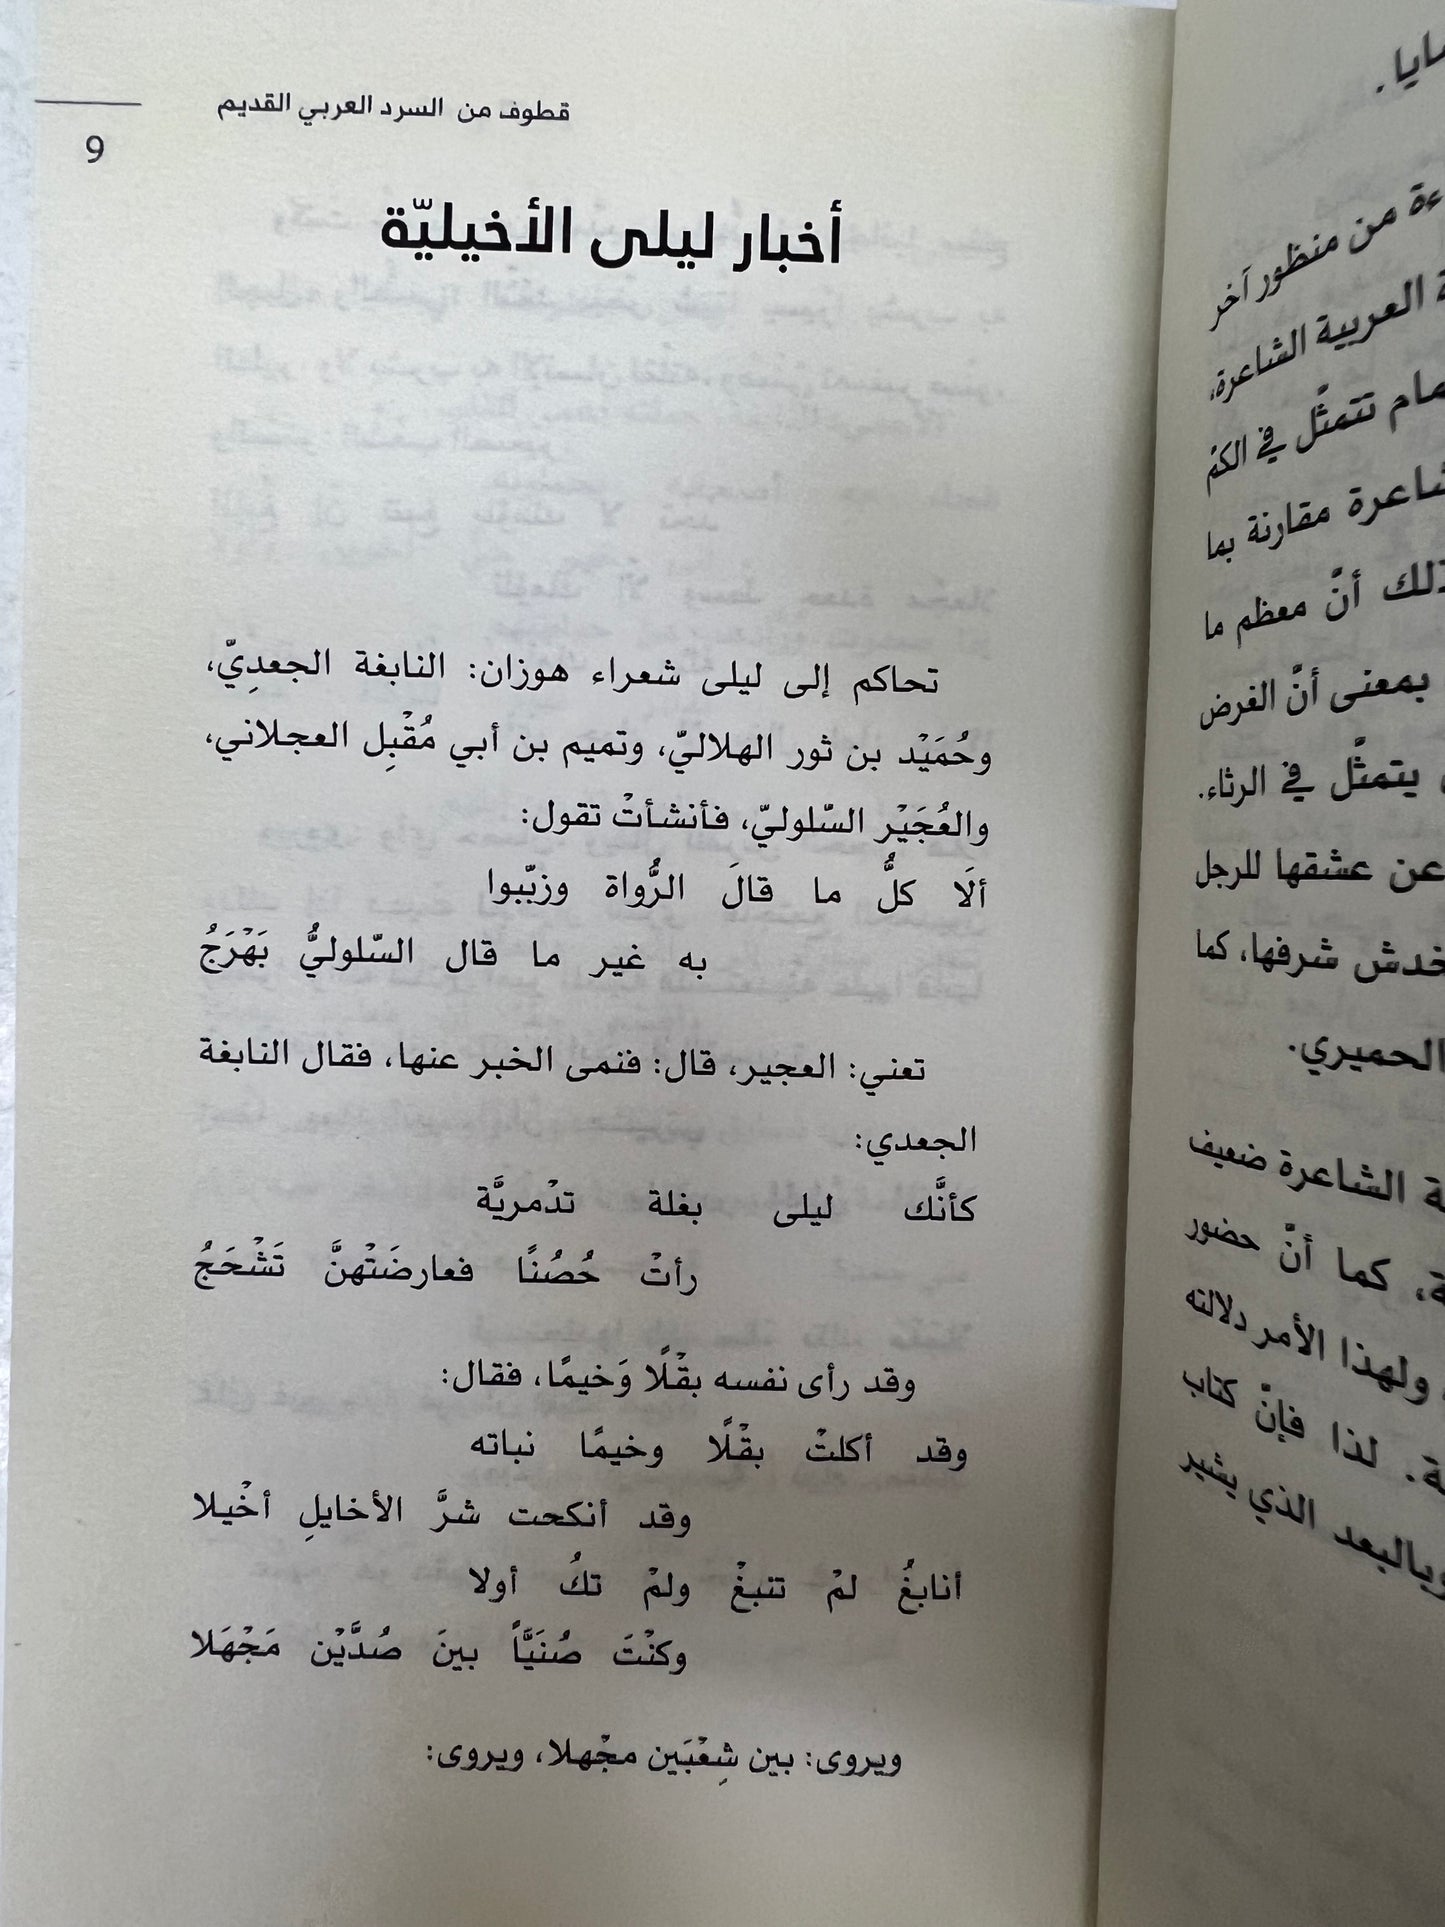 قطوف من السرد العربي القديم
9
أخبار ليلى الأخيليّة
تحاكم إلى ليلى شعراء هوزان: النابغة الجعدِيّ،
وحُمَيْد بن ثور الهلاليّ، وتميم بن أبي مُقْبِل العجلاني،
والعُجَيْر السّلوليّ، فأنشأتْ تقول:
ألَا كلُّ ما قالَ الرُّواة وزبّبوا
به غير ما قال السّلوليُّ بَهْرَجُ
تعني: العجير، قال: فنمى الخبر عنها، فقال النابغة
الجعدي:
كأنَّك ليلى بغلة تدْمريَّة
رأتْ حُصُنًا فعارضَتْهنَّ تَشْحَجُ
وقد رأى نفسه بقْلًا وَخيمًا، فقال:
وقد أكلتْ بقْلًا وخيمًا نباته
وقد أنكحت شرَّ الأخايلِ أخْيلا
أنابغُ لمْ تنبغْ ولمْ تكُ أولا
وكنْتَ صُنَيَّاً بينَ صُدَّيْن مَجْهَلا
ويروى: بين شِعْبَين مجْهلا، ويروى:
سايا.
ءة من منظور آخر
العربية الشاعرة،
تتمثَّل في الكمْ
شاعرة مقارنة بما
ذلك أنَّ معظم ما
بمعنى أنَّ الغرض
يتمثَّل في الرثاء.
عن عشقها للرجل
خدش شرفها، كما
الحميري.
ة الشاعرة ضعيف
ة، كما أنَّ حضور
ولهذا الأمر دلالته
ة. لذا فإنَّ كتاب
وبالبعد الذي يشير